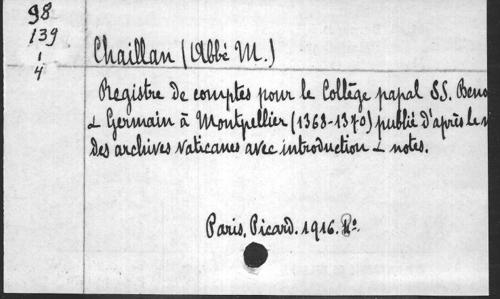 98
139
1
4
Chaillan (Abbé M.)
Registre de comptes pour le Collège papal SS. Beno
& Germain à Montpellier (1368-1370) publié d'après le
des archives vaticanes avec introduction & notes.
Paris, Picard. 1916.